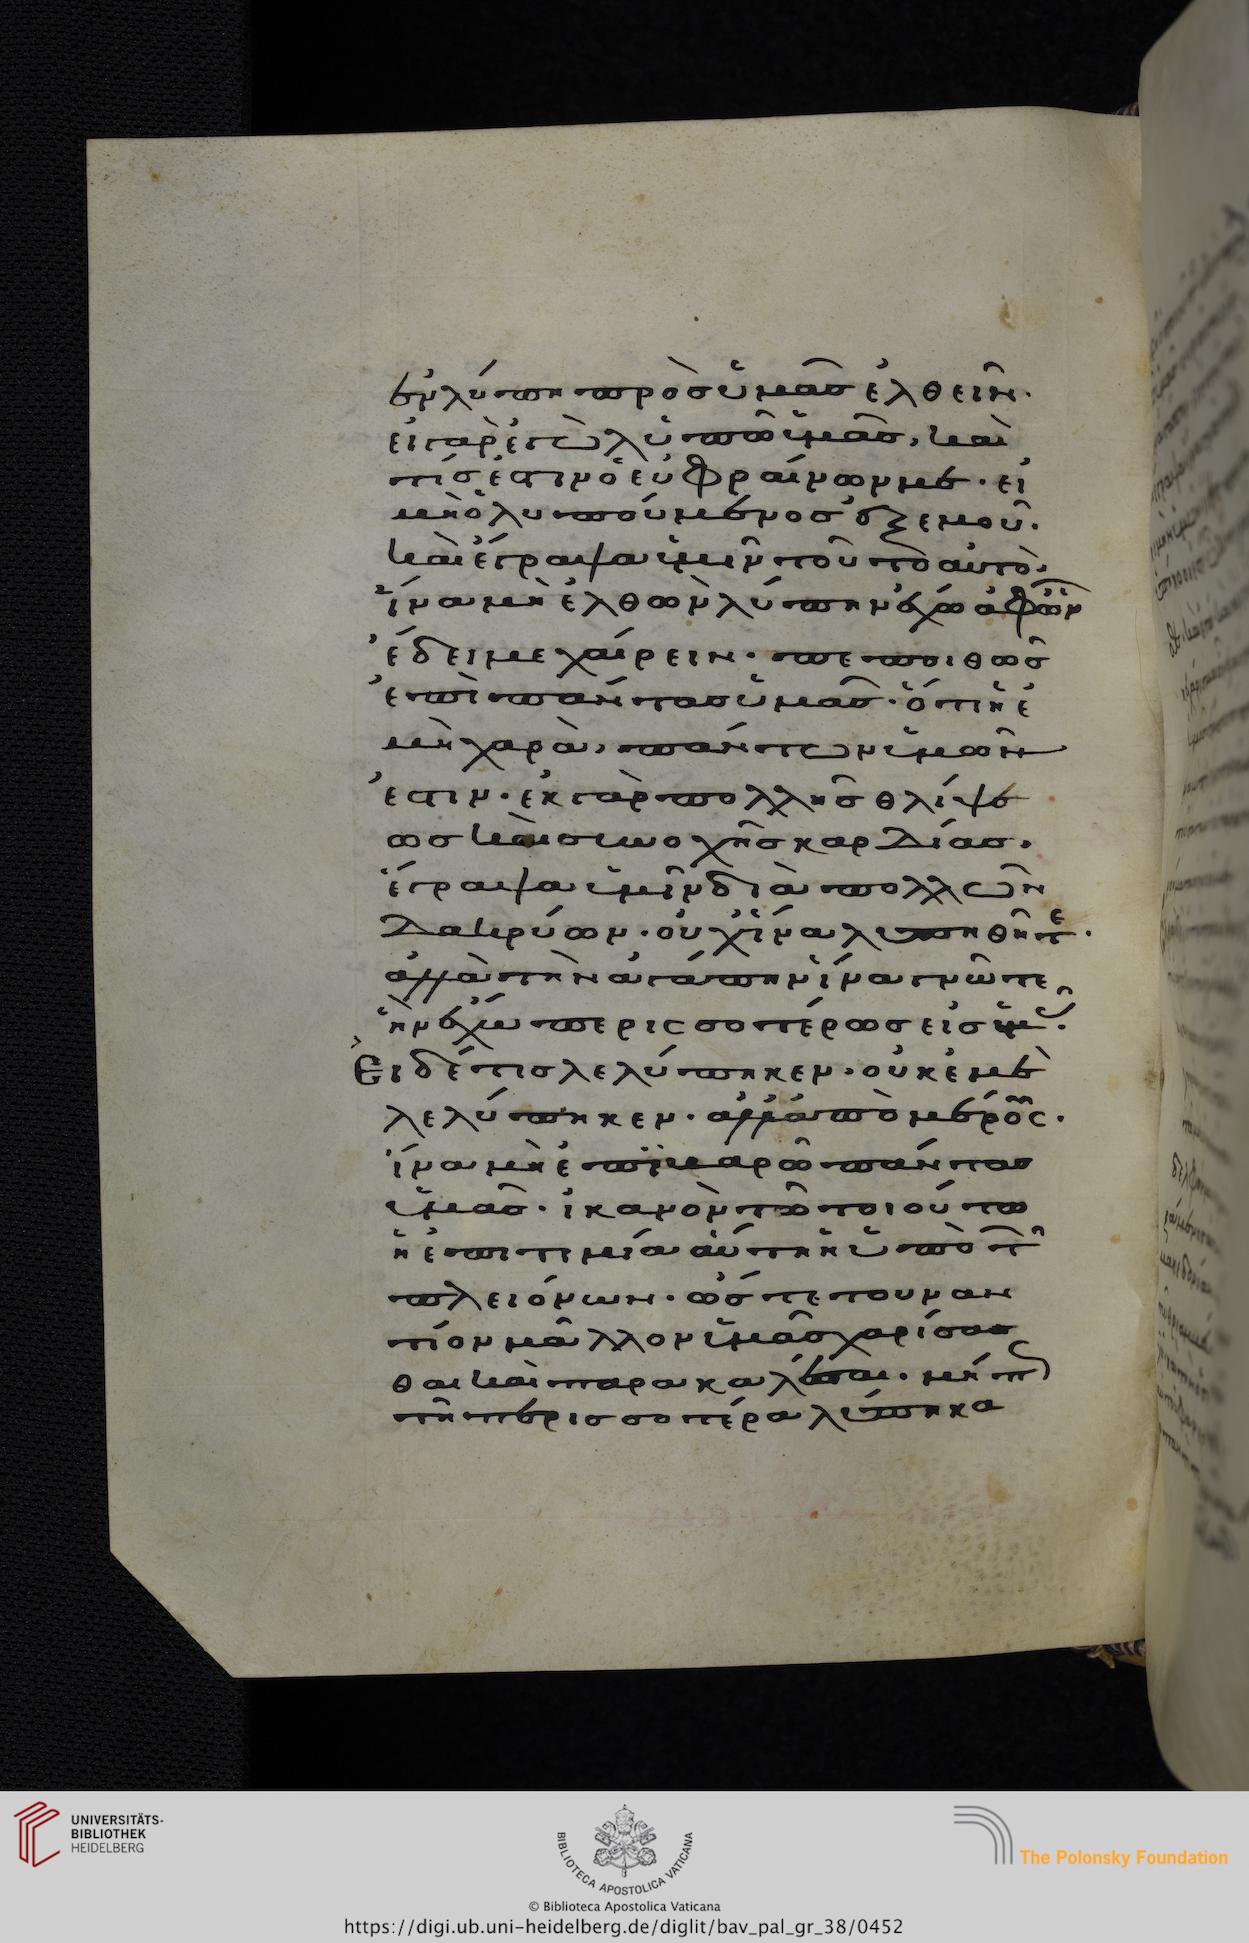 ἐν λύπη πρὸσ ὑμᾶσ ἐλθεῖν·
εἰ γὰρ ἐγὼ λυπῶ ὑμᾶσ, καὶ
τίσ ἐστιν ὁ εὐφραίνων με· εἰ
μὴ ὁ λυπούμενοσ ἐξ ἐμοῦ·
καὶ ἔγραψα ὑμῖν τοῦτο αὐτὸ,
ἵνα μὴ ἐλθὼν λύπην ἔχω ἀφ' ὧν
ἔδει με χαίρειν· πεποιθὼσ
ἐπὶ πάντασ ὑμᾶσ· ὅτι ἡ ἐ
μὴ χαρὰ, πάντων ὑμῶν
ἐστιν· ἐκ γὰρ πολλῆσ θλίψε
ωσ καὶ συνοχῆσ καρδίασ,
ἔγραψα ὑμῖν διὰ πολλῶν
δακρύων· οὐχ ἵνα λυπηθῆτε·
ἀλλὰ τὴν ἀγάπην ἵνα γνῶτε
ἣν ἔχω περισσοτέρωσ εἰσ ὑμ·
Εἰ δέ τισ λελύπηκεν· οὐκ ἐμὲ
λελύπηκεν· ἀλλὰ ἀπὸ μέρους·
ἵνα μὴ ἐπιβαρῶ πάντασ
ὑμᾶσ· ἱκανὸν τῶ τοιούτω
ἡ ἐπιτιμία αὕτη ἡ ὑπὸ τ
πλειόνων· ὥστε τουναν
τίον μᾶλλον ὑμᾶσ χαρίσασ
θαι καὶ παρακαλέσαι· μήπ
τῆ περισσοτέρα λύπη κα
UNIVERSITÄTS-
BIBLIOTHEK
HEIDELBERG
BIBLIOTECA APOSTOLICA VATICANA
The Polonsky Foundation
© Biblioteca Apostolica Vaticana
https://digi.ub.uni-heidelberg.de/diglit/bav_pal_gr_38/0452